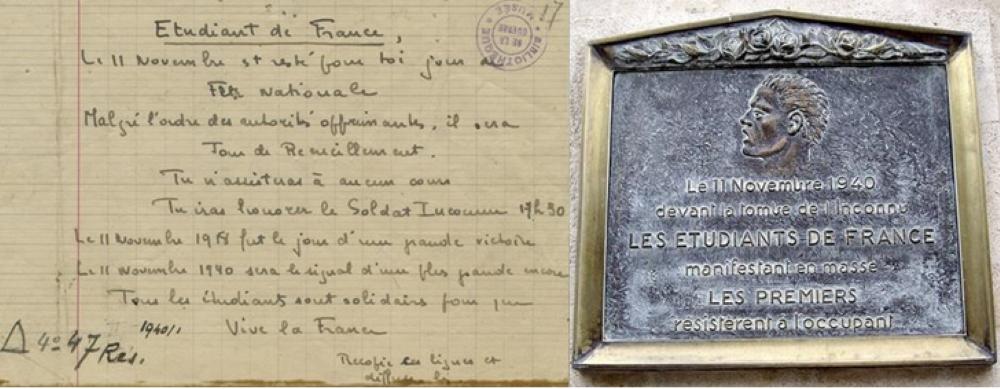 Etudiant de France,
Le 11 Novembre est resté pour toi jour de
Fête Nationale
Malgré l'ordre des autorités opprimantes, il sera
Jour de Recueillement.
Tu n'assisteras à aucun cours
Tu iras honorer le Soldat Inconnu 17h30
Le 11 Novembre 1918 fut le jour d'une grande victoire
Le 11 Novembre 1940 sera le signal d'une plus grande encore
Tous les étudiants sont solidaires pour que
Vive la France
Recopie ces lignes et
diffuse les
1940/1
Δ 4° 47 Res.
BIBLIOTHÈQUE
MUSÉE
DE LA
GUERRE
Le 11 Novembre 1940
devant la tombe de l'Inconnu
LES ETUDIANTS DE FRANCE
manifestant en masse
LES PREMIERS
résistèrent à l'occupant